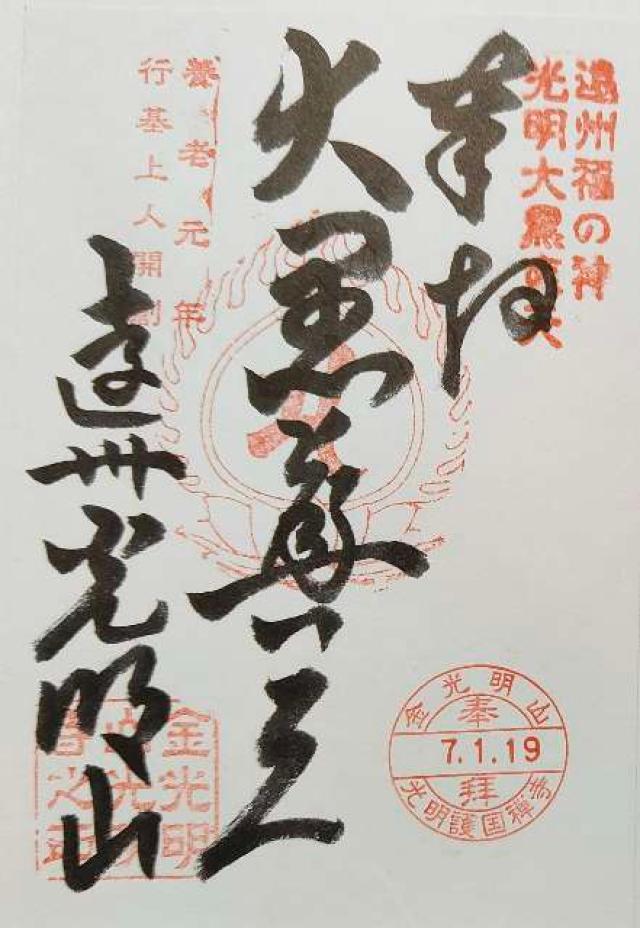 遠州福の神
光明大黒尊天
奉拝
大黒尊天
養老元年
行基上人開創
遠州光明山
金光明山
奉
7.1.19
拝
光明護国禅寺